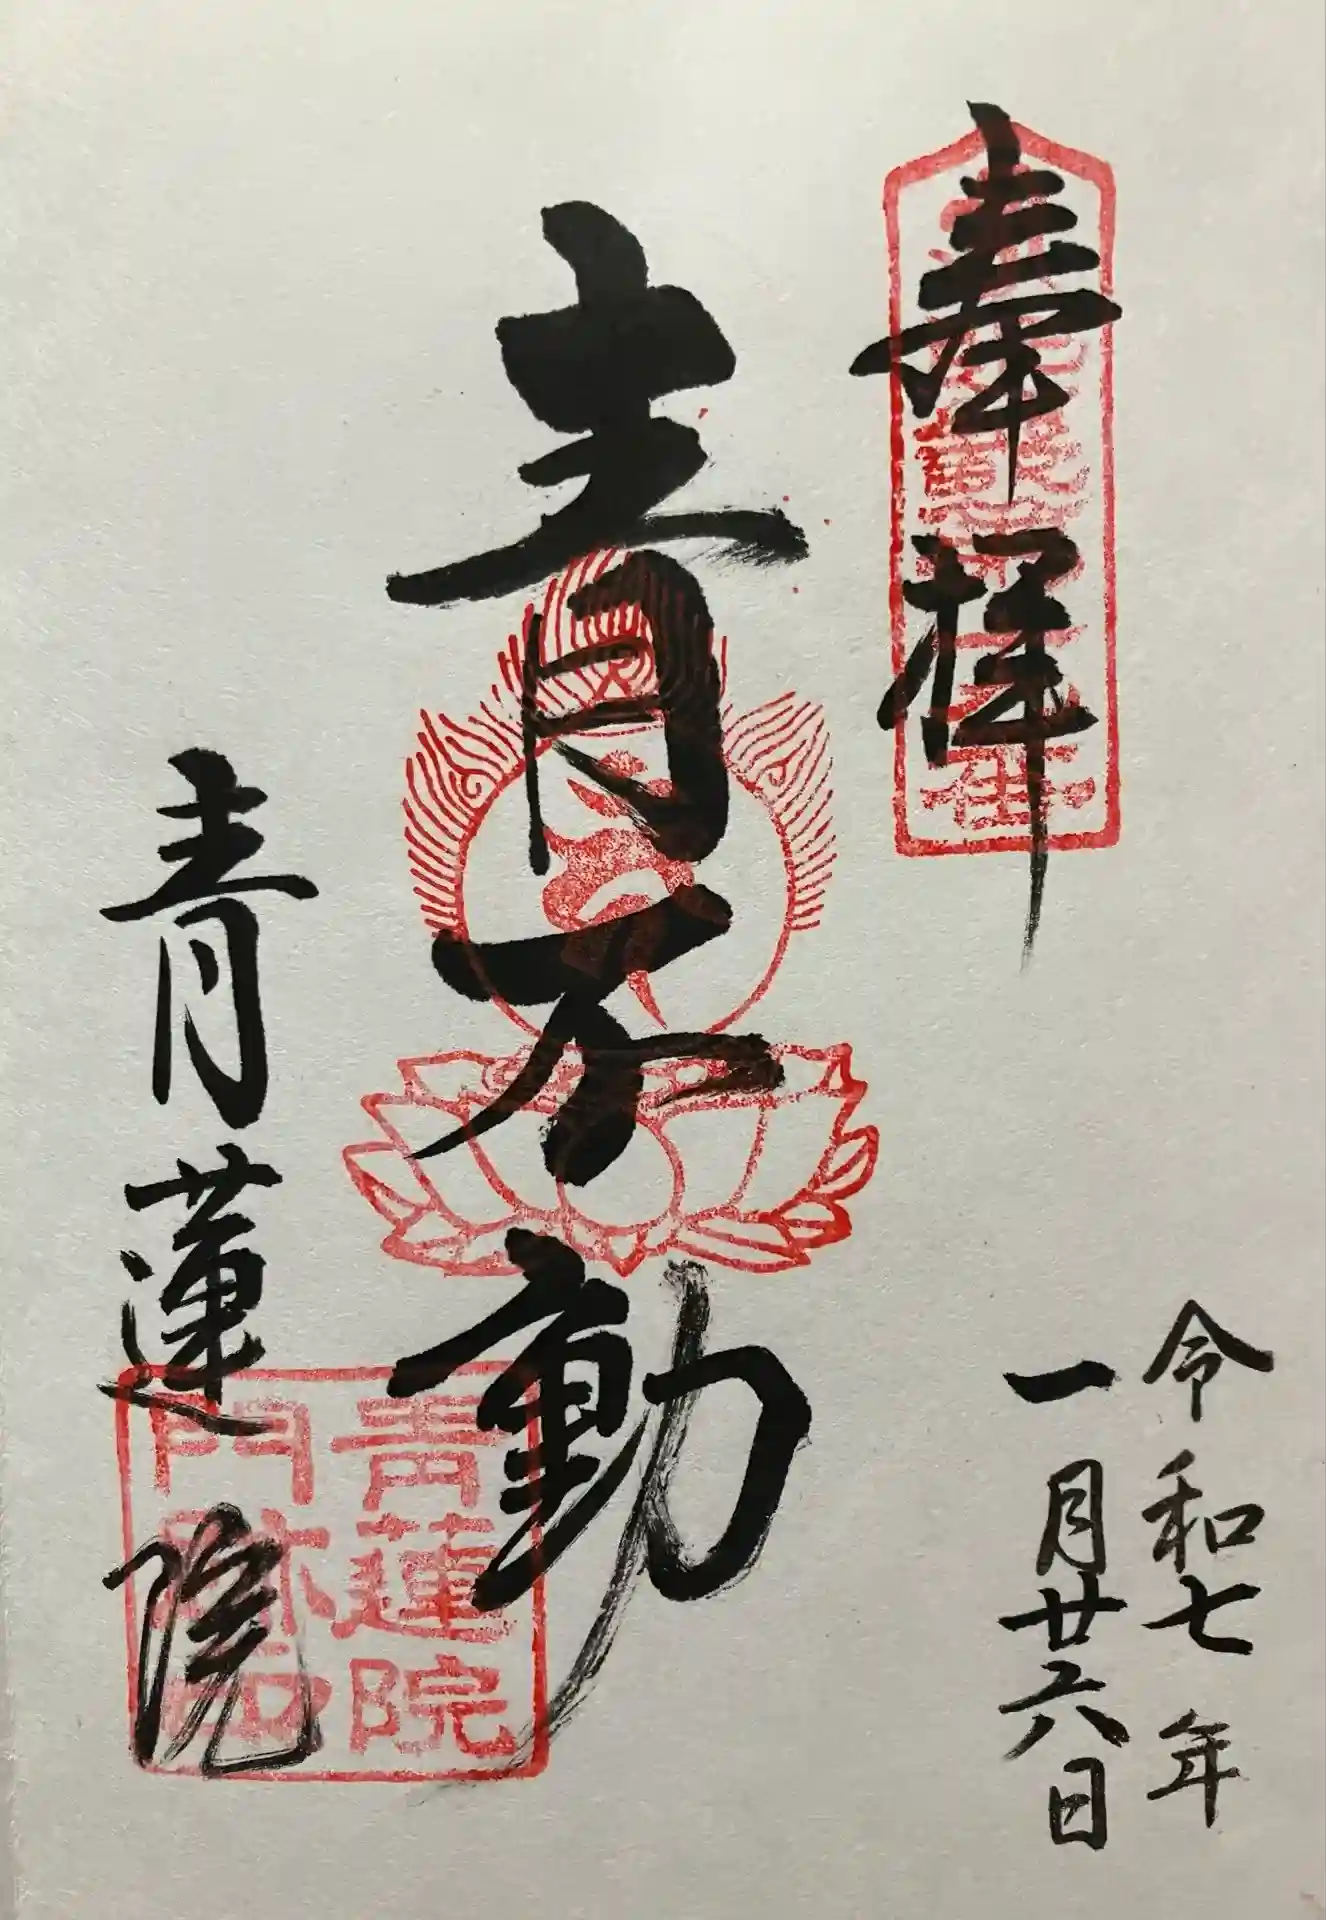 奉拝
令和七年
一月廿六日
青不動
青蓮院
青蓮院
門跡印